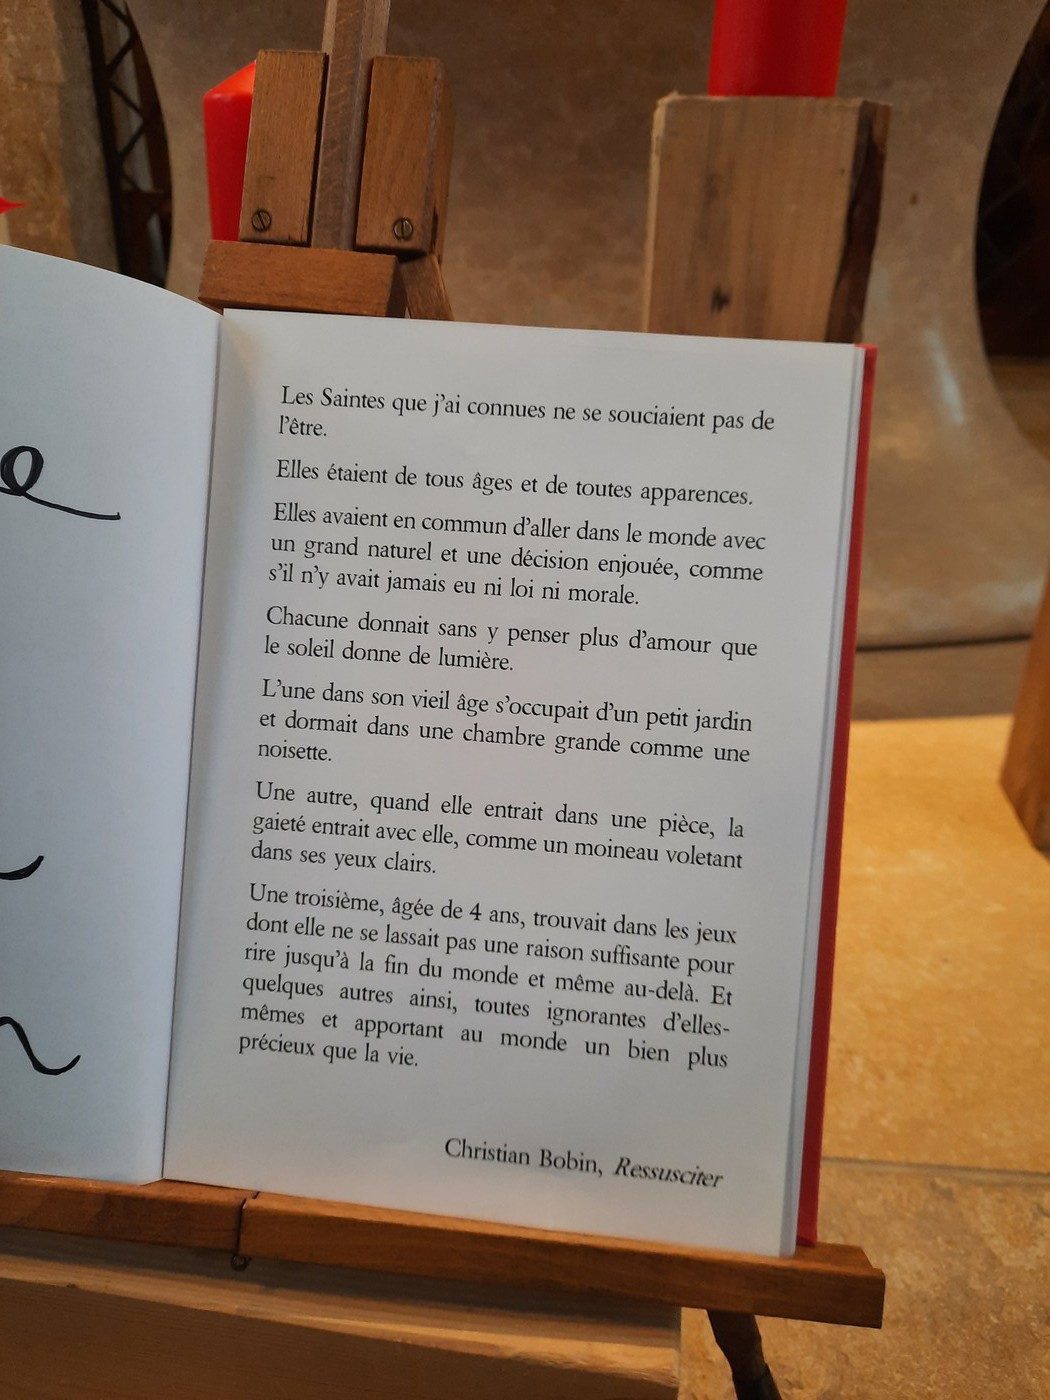 Les Saintes que j'ai connues ne se souciaient pas de
l'être.
Elles étaient de tous âges et de toutes apparences.
Elles avaient en commun d'aller dans le monde avec
un grand naturel et une décision enjouée, comme
s'il n'y avait jamais eu ni loi ni morale.
Chacune donnait sans y penser plus d'amour que
le soleil donne de lumière.
L'une dans son vieil âge s'occupait d'un petit jardin
et dormait dans une chambre grande comme une
noisette.
Une autre, quand elle entrait dans une pièce, la
gaieté entrait avec elle, comme un moineau voletant
dans ses yeux clairs.
Une troisième, âgée de 4 ans, trouvait dans les jeux
dont elle ne se lassait pas une raison suffisante pour
rire jusqu'à la fin du monde et même au-delà. Et
quelques autres ainsi, toutes ignorantes d'elles-
mêmes et apportant au monde un bien plus
précieux que la vie.
Christian Bobin, Ressusciter